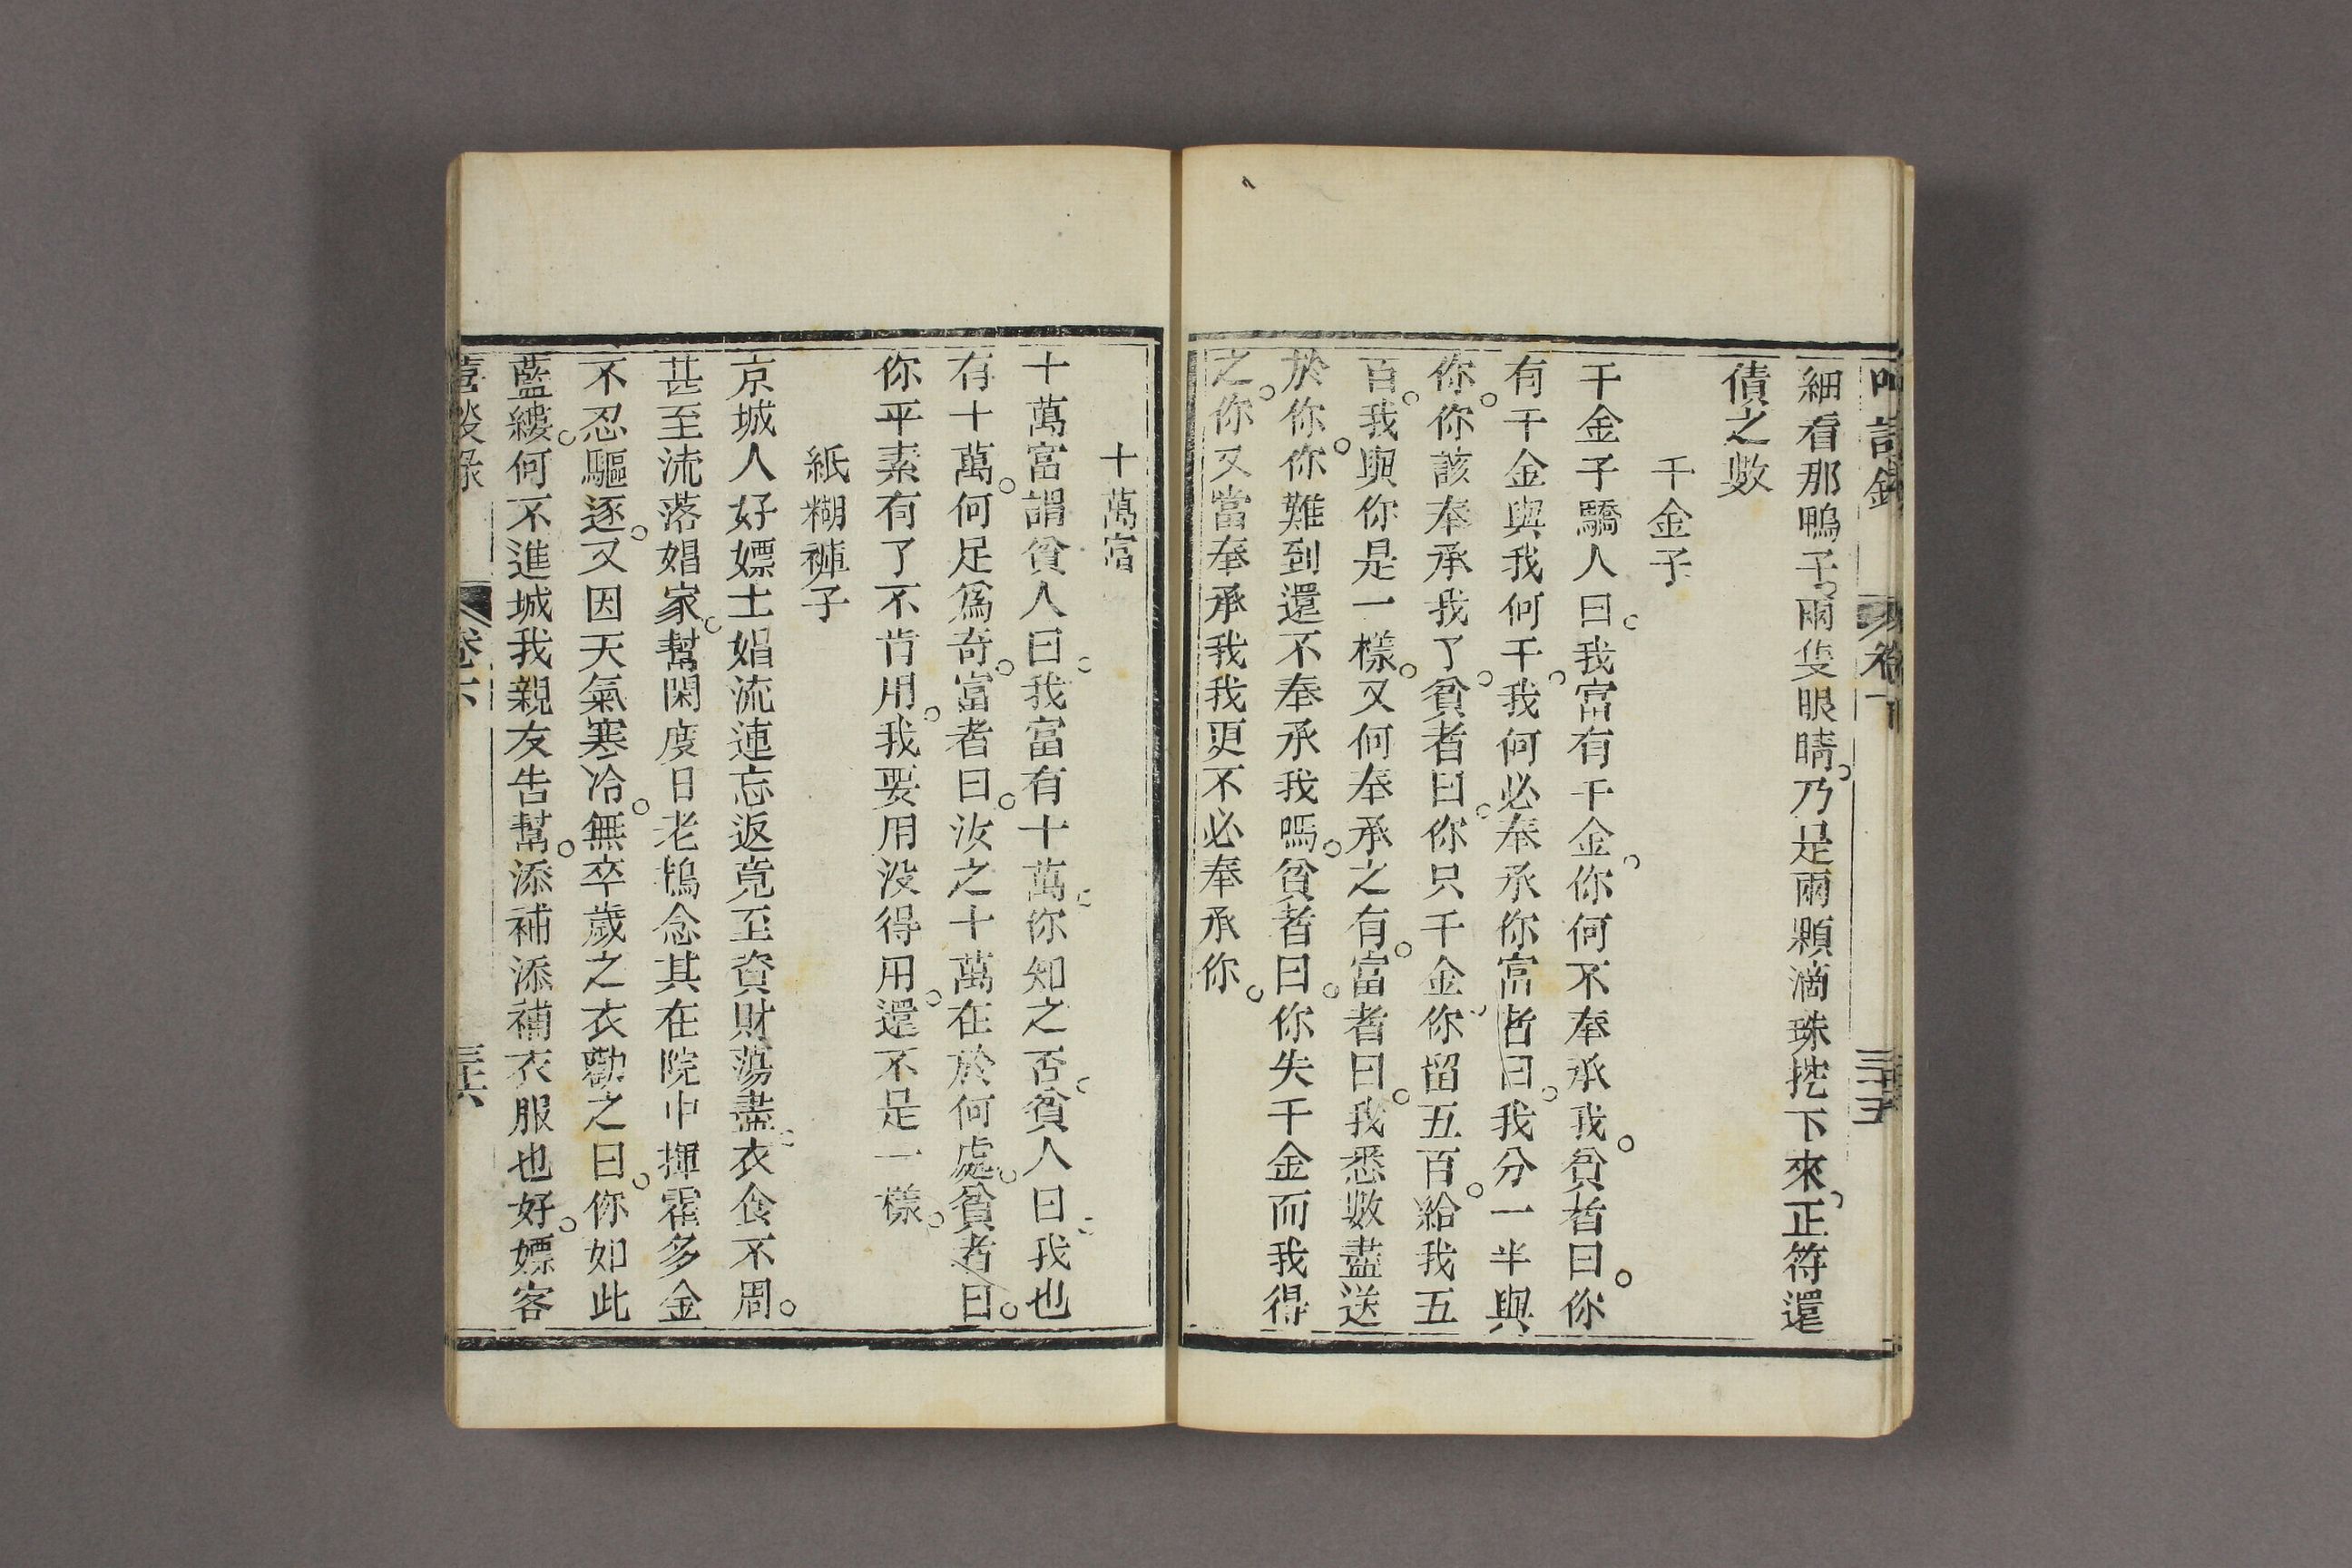 細看那鴨子。兩隻眼睛。乃是兩顆滴珠挖下來。正符還
債之數
千金子
千金子驕人曰。我富有千金。你何不奉承我。貧者曰。你
有千金與我何干。我何必奉承你富者曰。我分一半與
你。你該奉承我了。貧者曰。你只千金你留五百。給我五
百。我與你是一樣。又何奉承之有。富者曰。我悉數盡送
於你。你難到還不奉承我嗎。貧者曰。你失千金而我得
之。你又當奉承我我更不必奉承你。
十萬富
十萬富謂貧人曰。我富有十萬。你知之否。貧人曰。我也
有十萬。何足爲奇。富者曰。汝之十萬在於何處。貧者曰。
你平素有了不肯用。我要用没得用。還不是一樣。
紙糊褲子
京城人好嫖土娼流連忘返竟至資財蕩盡。衣食不周。
甚至流落娼家。幫閑度日老鴇念其在院中揮霍多金
不忍驅逐。又因天氣寒冷。無卒歲之衣勸之曰。你如此
藍縷。何不進城我親友告幫。添補添補衣服也好。嫖客
卷下
三十六